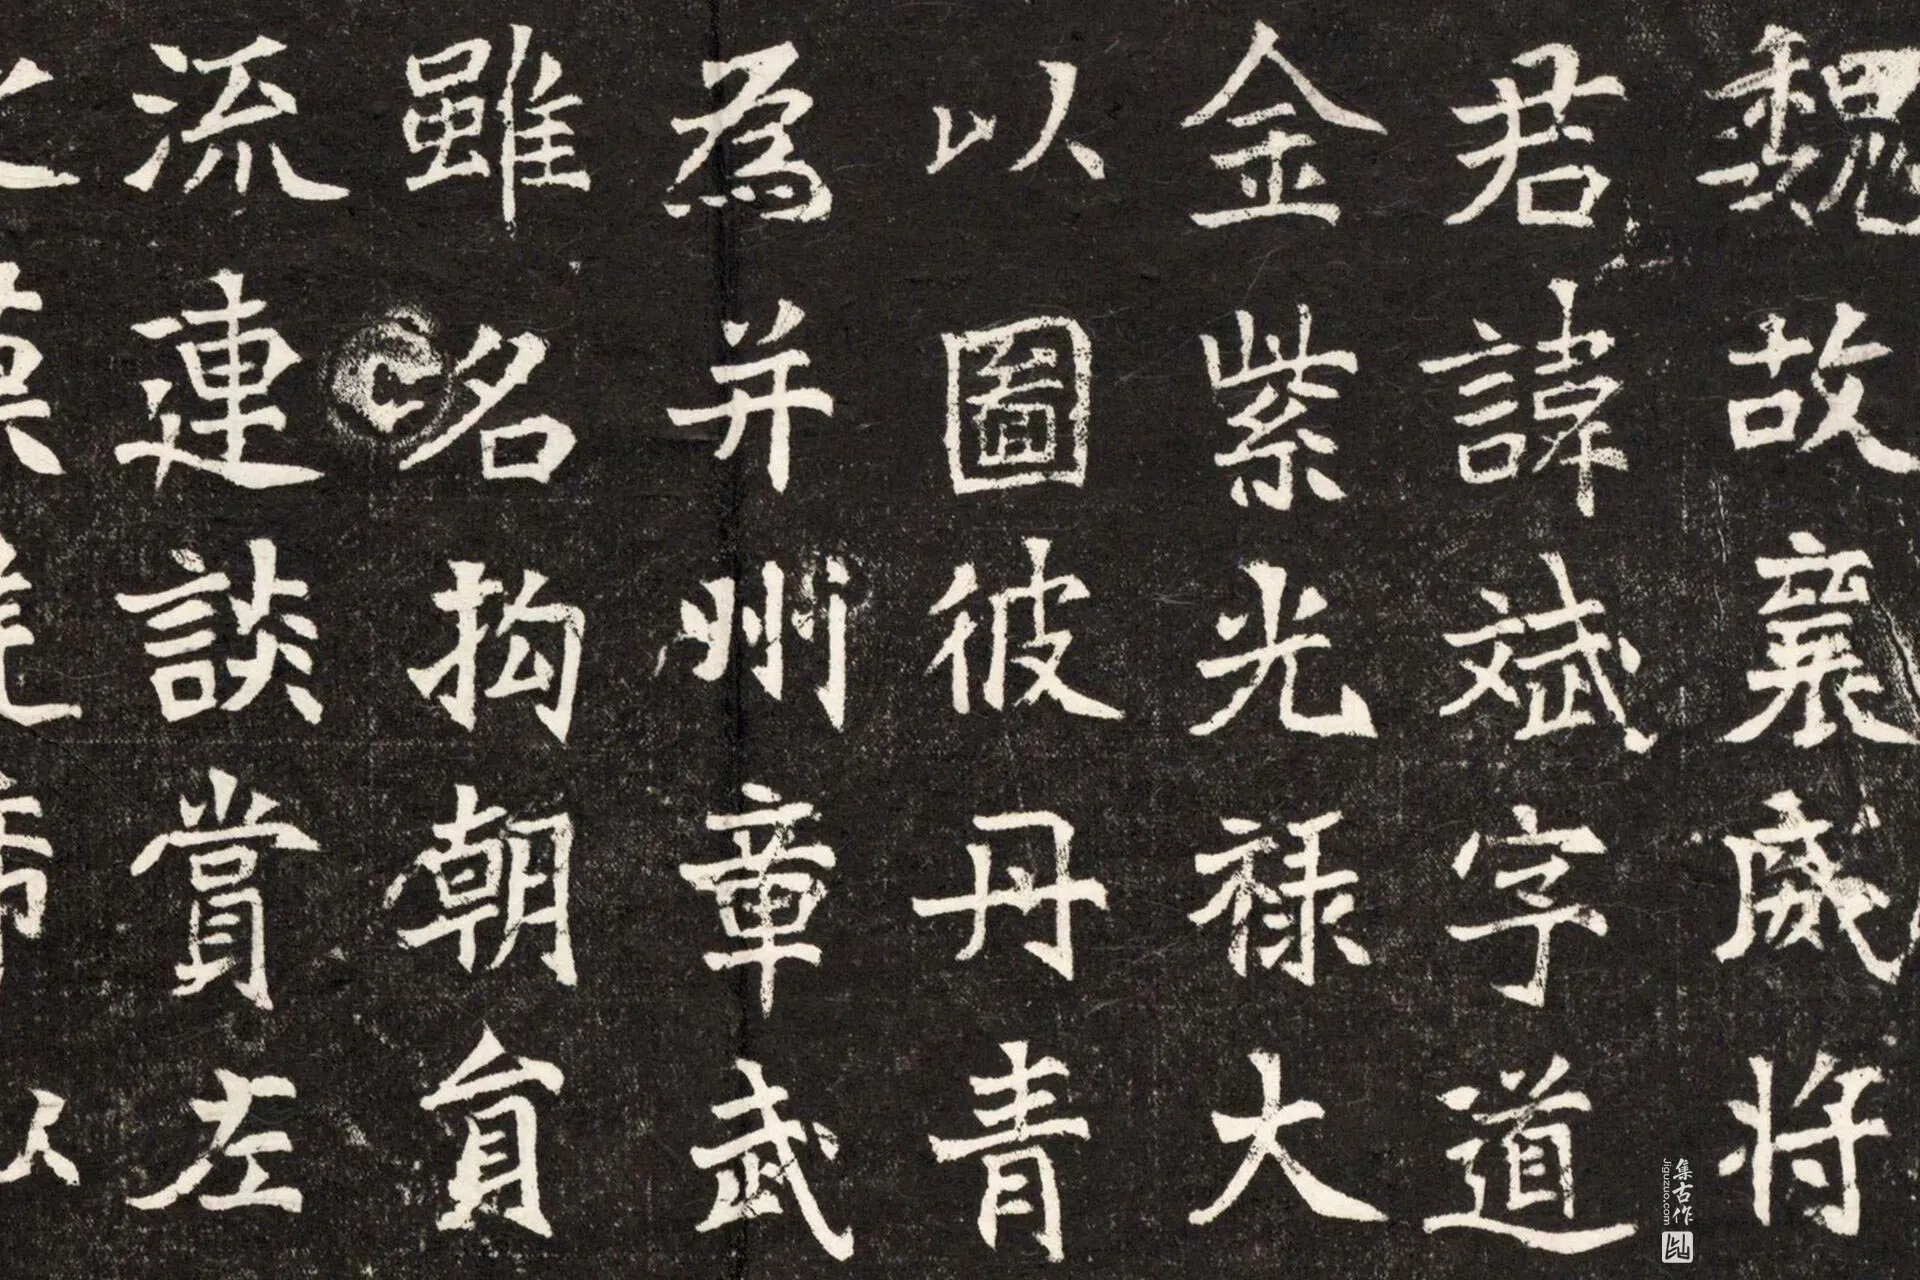 魏故襄威将
君諱斌字道
金紫光禄大
以圖彼丹青
為并州章武
雖名拘朝員
流連談賞左
集古作
Jiguzuo.com